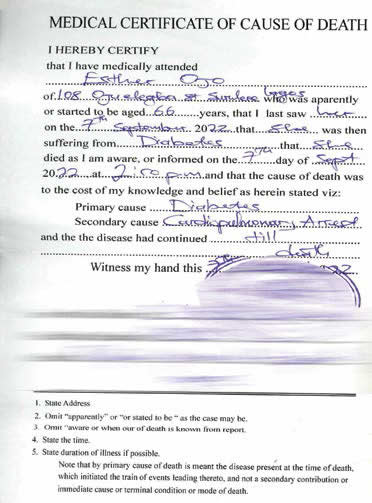 MEDICAL CERTIFICATE OF CAUSE OF DEATH
I HEREBY CERTIFY
that I have medically attended
Esther Ojo
of 108 Ojuelegba st Surulere Lagos who was aparently
or started to be aged 66 years, that I last saw her
on the 7th September 2022 that She was then
suffering from Diabetes that She
died as I am aware, or informed on the 7th day of Sept
2022 at 2:50 p.m and that the cause of death was
to the cost of my knowledge and belief as herein stated viz:
Primary cause Diabetes
Secondary cause Cardiopulmonary Arrest
and the the disease had continued till
death
Witness my hand this 22
1. State Address
2. Omit "apparently" or "or stated to be " as the case may be.
3. Omit "aware or when our of death is known from report.
4. State the time.
5. State duration of illness if possible.
Note that by primary cause of death is meant the disease present at the time of death,
which initiated the train of events leading thereto, and not a secondary contribution or
immediate cause or terminal condition or mode of death.